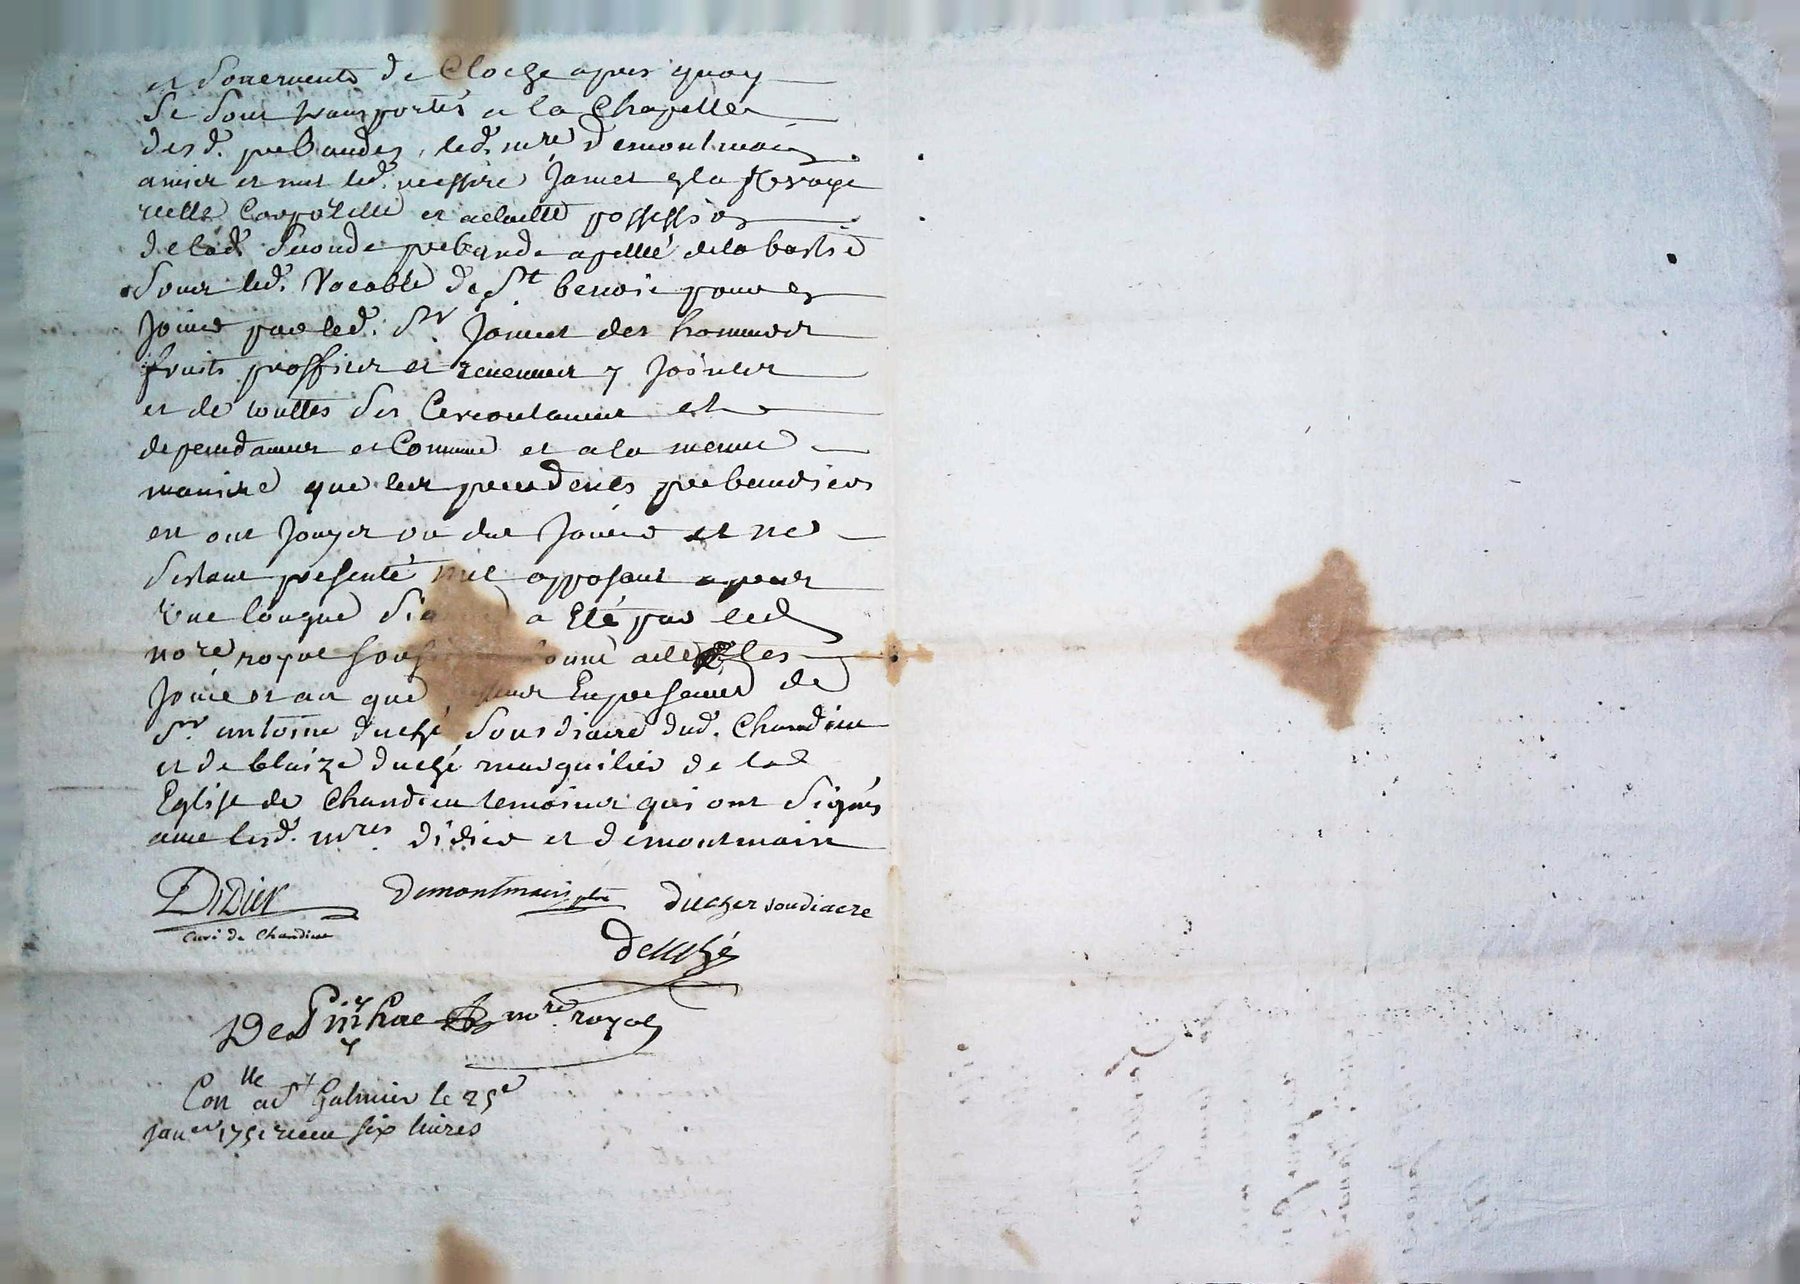 et sonnements de Cloche apres quoy
se sont transportés a la Chapelle
desd. prebandes, led. mre demontmain
a mis et met led. messire Jamet en la
reelle Corporelle et actuelle possession
de lad. seconde prebande apellé de la bastie
sous led. Vocable de St. benoit pour en
Jouir par led. Sr. Jamet des honneurs
fruits proffits et revenus y Joints
et de touttes ses Circonstances et
dependances et Comme et a la meme
maniere que les precedents prebandiers
en ont Jouys ou dus Jouir et ne
sestant presenté nul opposant apres
une longue a Eté par led
nore royal acte les
Jour et an que Enpresence de
Sr. antoine duché sousdiacre dud. Chandieu
et de blaize duché marguilier de lad
Eglise de Chandieu temoins qui ont signés
avec lesd. mres. didier et demontmain
Didier demontmain ptre ducher soudiacre
Curé de Chandieu
nore royal
Con lle a St Galmier le 25e
janer 1751 receu six livres